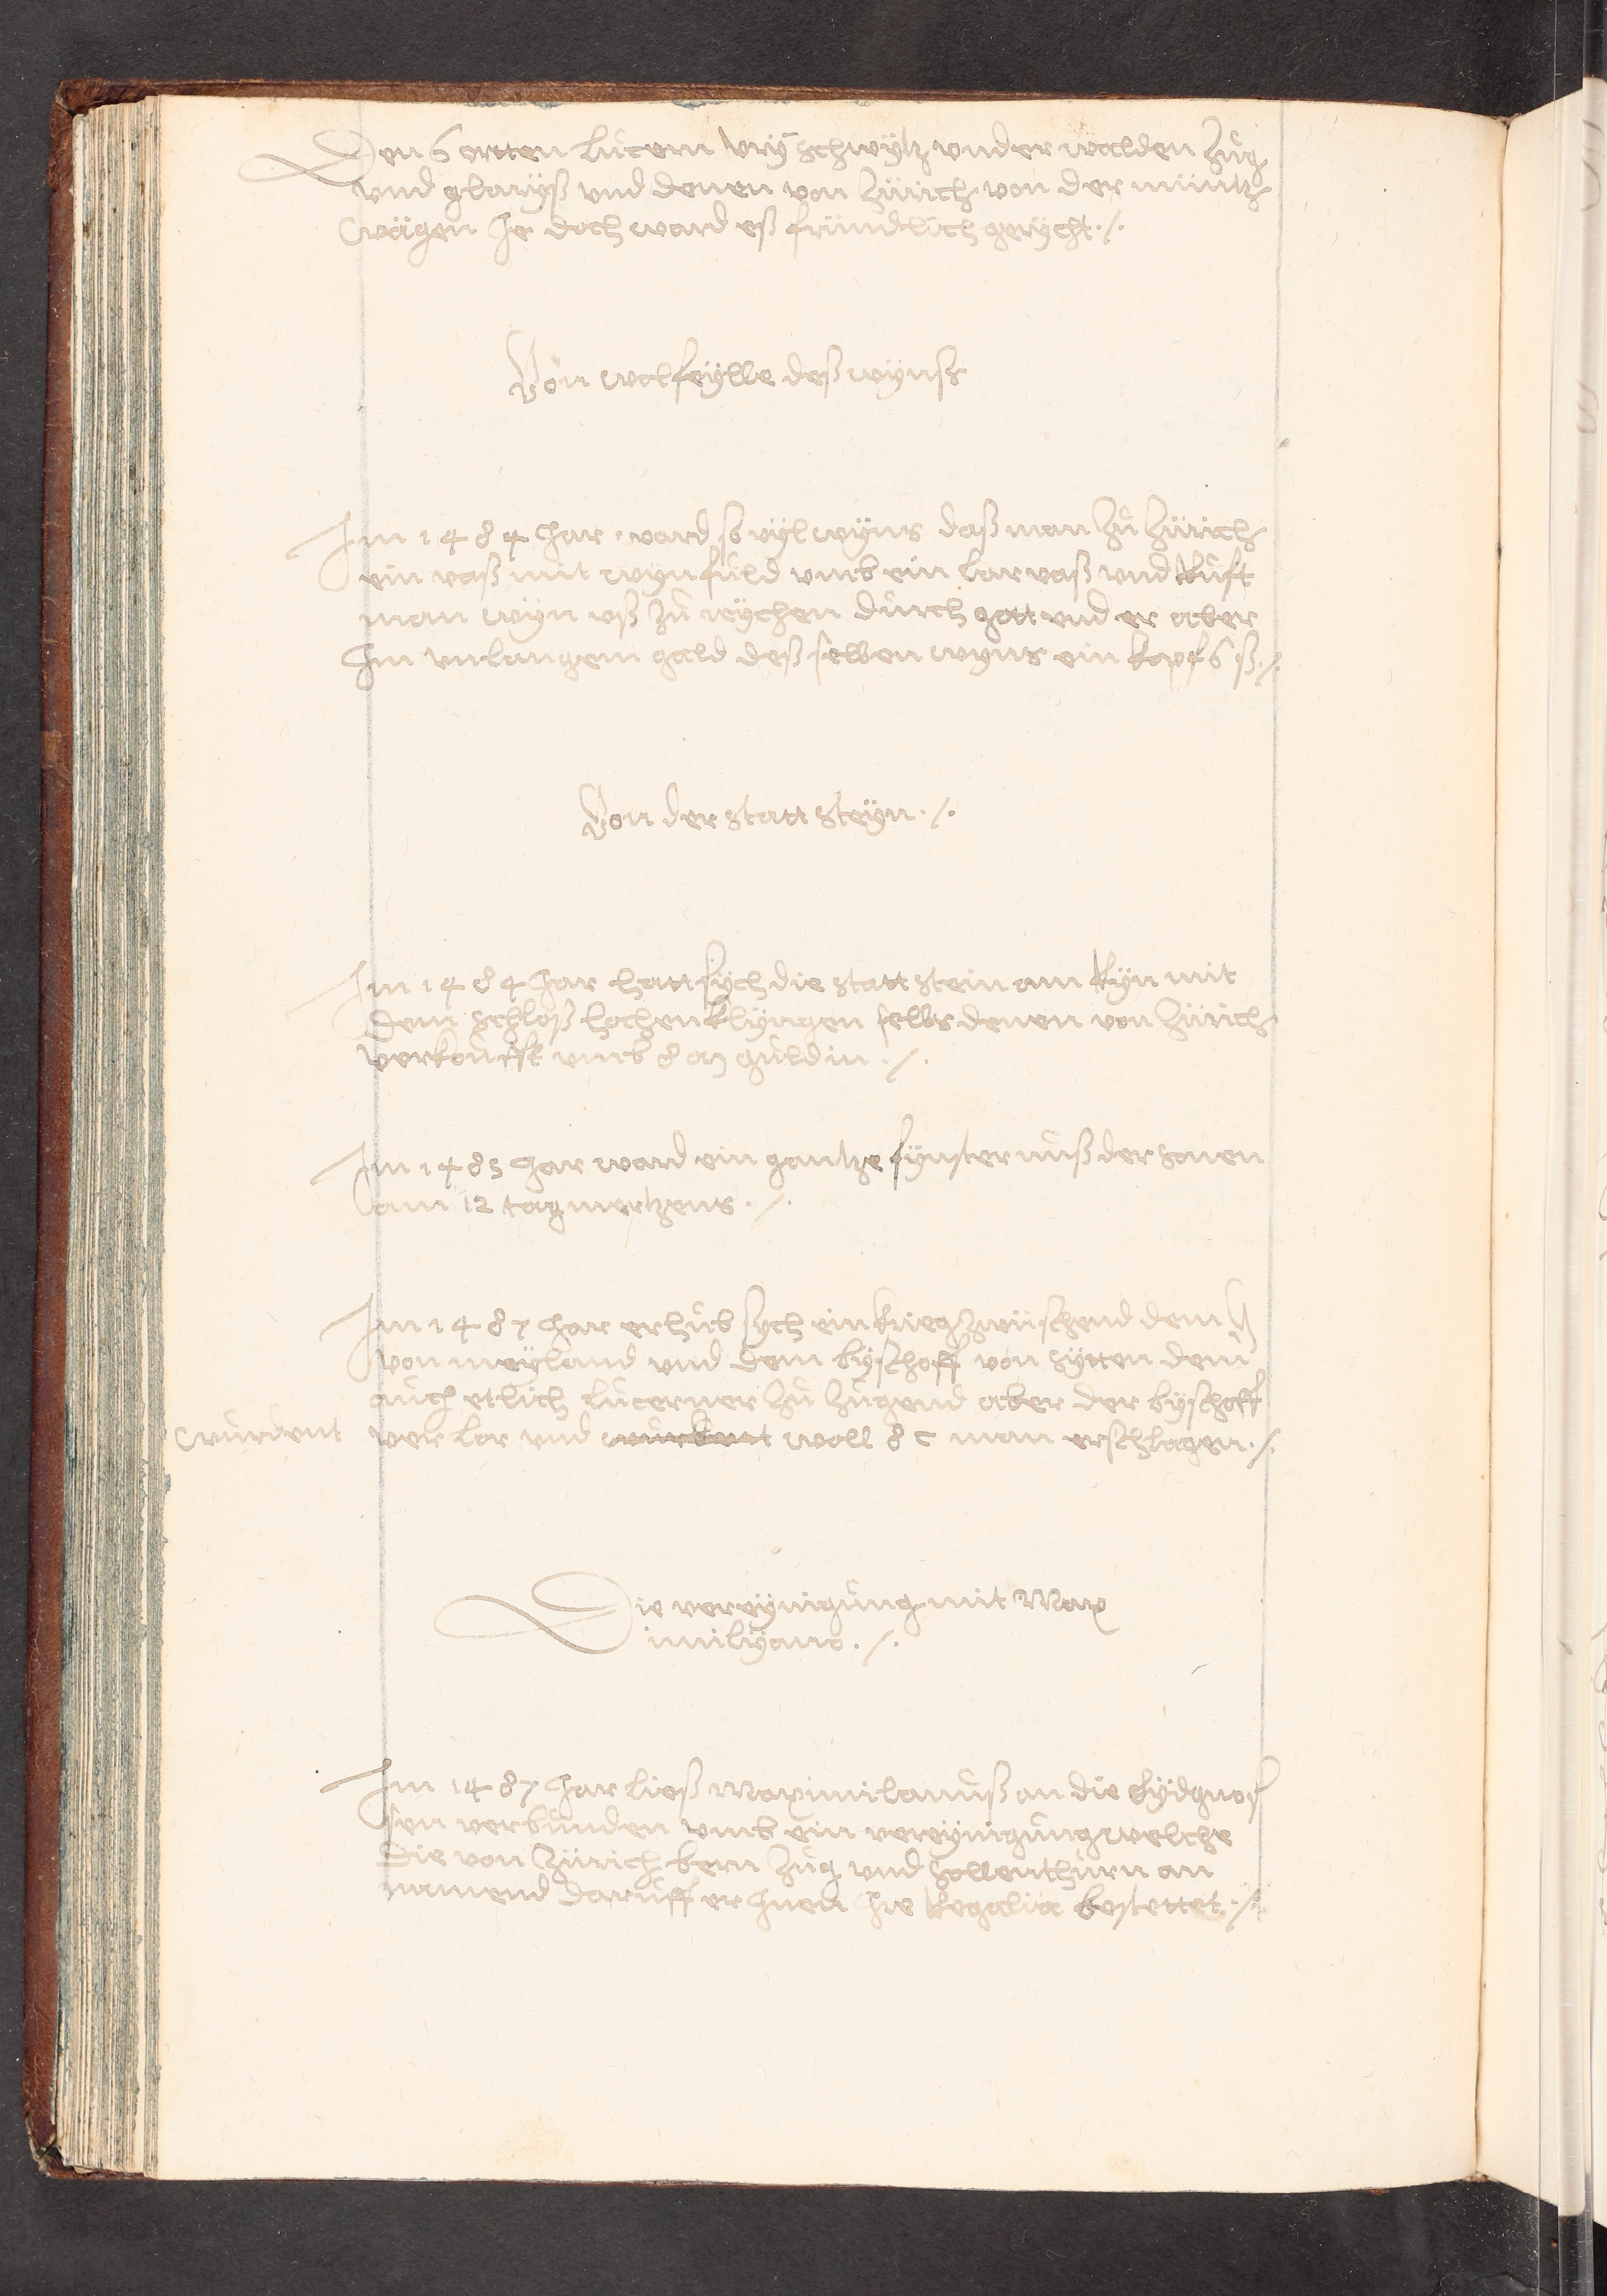 Den 6 ortten lucern Ury Schwÿtz under walden Zůg
und glarÿß und denen von Zürich von der müntz
wägen Je doch ward eß fründtlich gerÿcht ·/·
Von wolfeÿlle deß wÿnß
Im 1484 Jar ward so vÿl wÿns daß man Zů Zürich
ein vaß mit wÿn fuld umb ein lar vaß und Růft
man wÿn uß Zů reÿchen durch gott und er aber
Jn unlangem gald deß selben wÿns ein kopf 6 ß ·/·
Von der statt Steÿn ·/·
Im 1484 Jar hatt sÿch die statt stein am Rÿn mit
dem schloß hochen klÿngen selbs denen von Zürich
verkoufft umb 8 m guldin ·/·
Im 1485 Jar ward ein gantze fÿnsternuß der sonen
am 12 tag mertzens ·/·
Im 1487 Jar erhůb sÿch ein krieg zwüschend dem H
von meÿland und dem bÿschoff von sÿtten dem
auch etlich lucerner Zů Zugend aber der bÿschoff
wurdent ver lor und wurdent woll 8 c man erschlagen ·/·
Die vereÿnigung mit Max
imilÿano ·/·
Im 1487 Jar ließ Maximilanuß an die Eÿdgnos
sen verbunden umb ein vereÿnigung welche
die von Zürich bern Zug und Sollenthurn an
namend daruff er Jnen Jre Regalia bestettet ·/·